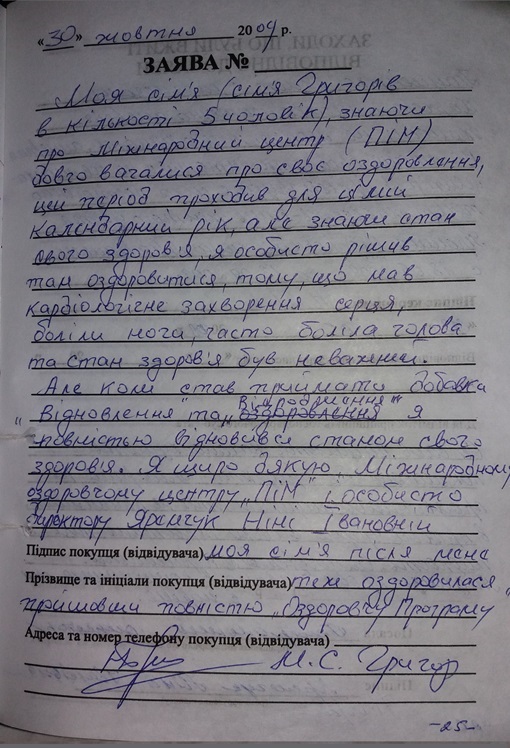 «30» жовтня 2009 р.
ЗАЯВА №
Моя сім'я (сім'я Григорів
в кількості 5 чоловік), знаючи
про Міжнародний центр (ПІМ)
довго вагалися про своє оздоровлення,
цей період проходив для цілий
календарний рік, але знаючи стан
свого здоров'я, я особисто рішив
там оздоровитися, тому, що мав
кардіологічне захворення серця,
боліли ноги, часто боліла голова
та стан здоров'я був неважний.
Але коли став приймати добавки
"Відновлення" та "оздоровлення" я
повністю відновився станом свого
здоров'я. Я щиро дякую Міжнародному
оздоровчому центру "ПІМ" і особисто
директору Яремчук Ніні Івановній
Підпис покупця (відвідувача) моя сім'я після мене
Прізвище та ініціали покупця (відвідувача) теж оздоровилася
пройшовши повністю "Оздоровчу Програму"
Адреса та номер телефону покупця (відвідувача)
М. С. Григор
-25-